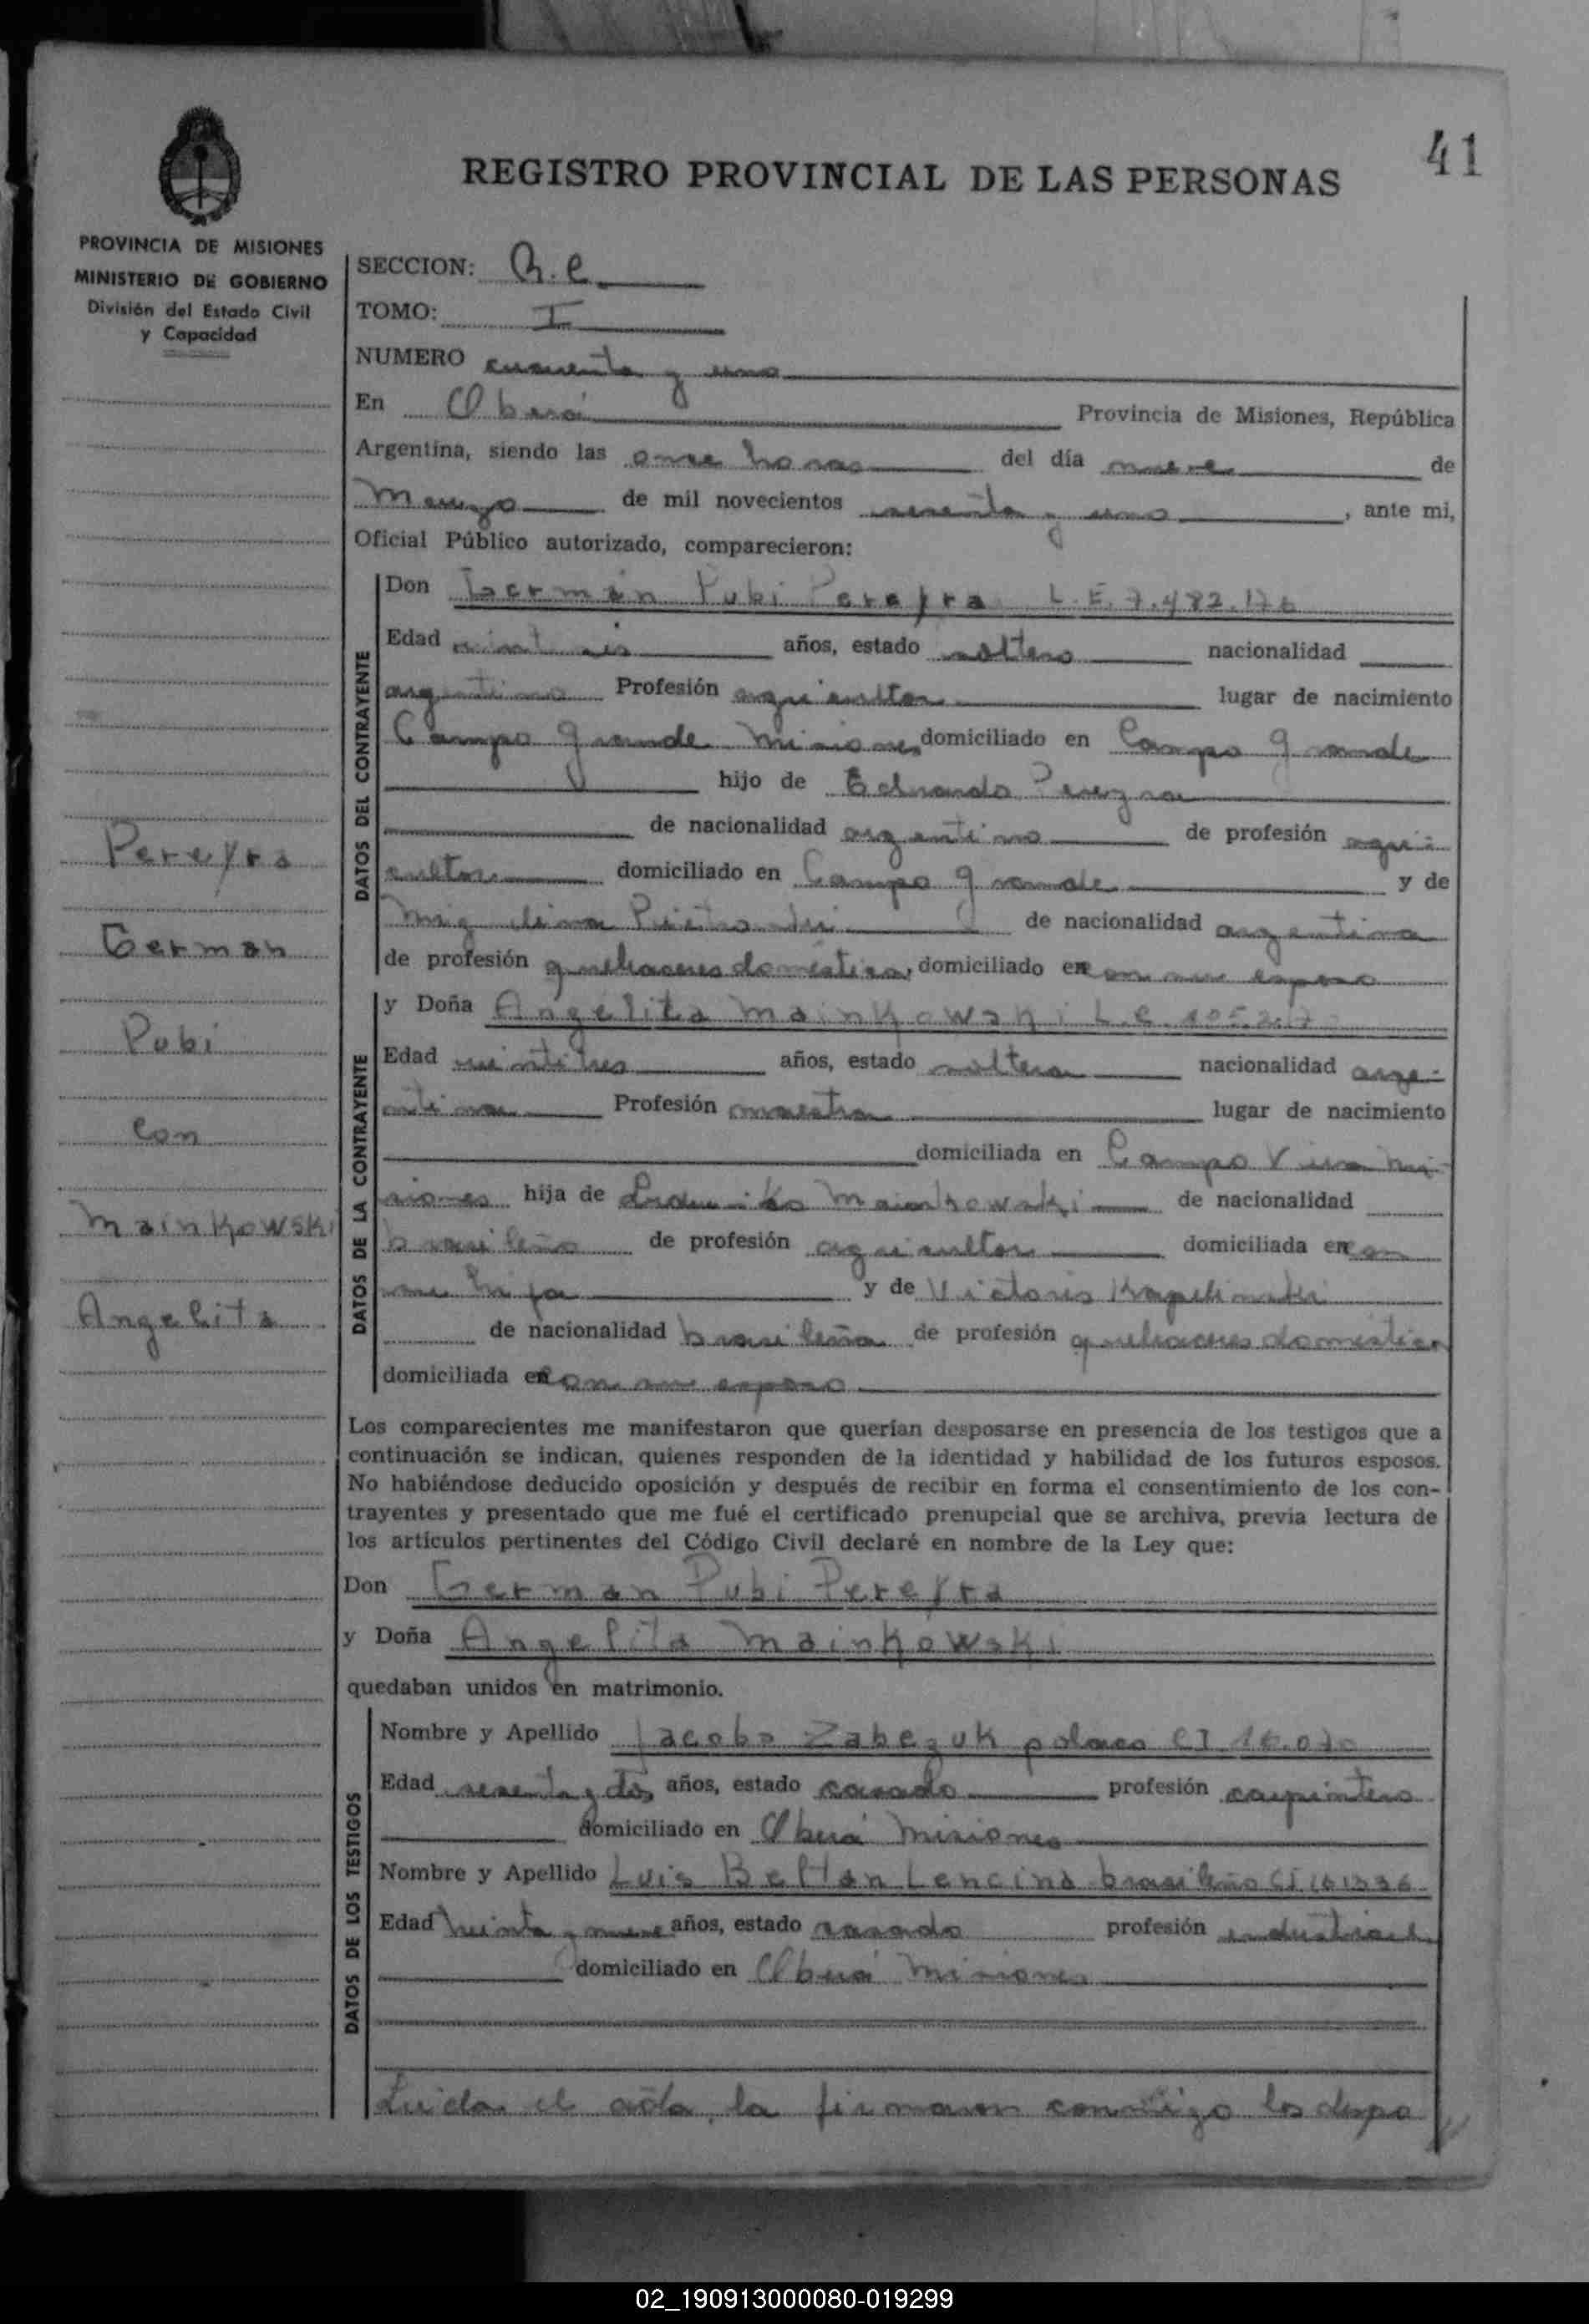 41
REGISTRO PROVINCIAL DE LAS PERSONAS
PROVINCIA DE MISIONES
MINISTERIO DE GOBIERNO
División del Estado Civil
y Capacidad
SECCION:
TOMO: I
NUMERO cuarenta y uno
En Oberá Provincia de Misiones, República
Argentina, siendo las once horas del día nueve de
Marzo de mil novecientos sesenta y uno, ante mi,
Oficial Público autorizado, comparecieron:
DATOS DEL CONTRAYENTE
Don Germán Pubi Pereyra L.E. 7.482.176
Edad años, estado soltero nacionalidad
argentino Profesión agricultor lugar de nacimiento
Campo Grande Misiones domiciliado en Campo Grande
hijo de Eduardo Pereyra
de nacionalidad argentino de profesión agri-
cultor domiciliado en Campo Grande y de
de nacionalidad argentina
de profesión quehaceres domésticos, domiciliado con su esposo
DATOS DE LA CONTRAYENTE
y Doña Angélita Mainkowski L.C.
Edad veintitres años, estado soltera nacionalidad arge-
ntina Profesión maestra lugar de nacimiento
domiciliada en Campo Viera Mi-
siones hija de Mainkowski de nacionalidad
brasileño de profesión agricultor domiciliada con
su hija y de
de nacionalidad brasileña de profesión quehaceres domésticos
domiciliada con su esposo
Los comparecientes me manifestaron que querían desposarse en presencia de los testigos que a
continuación se indican, quienes responden de la identidad y habilidad de los futuros esposos.
No habiéndose deducido oposición y después de recibir en forma el consentimiento de los con-
trayentes y presentado que me fué el certificado prenupcial que se archiva, previa lectura de
los artículos pertinentes del Código Civil declaré en nombre de la Ley que:
Don German Pubi Pereyra
y Doña Angelita Mainkowski
quedaban unidos en matrimonio.
DATOS DE LOS TESTIGOS
Nombre y Apellido Jacobo Zabezuk polaco CI
Edad sesenta y dos años, estado casado profesión carpintero
domiciliado en Oberá Misiones
Nombre y Apellido Luis Beltan Lencina brasileño CI
Edad treinta y nueve años, estado casado profesión industrial
domiciliado en Oberá Misiones
Leida el acta, la firmaron conmigo los despo
Pereyra
German
Pubi
con
Mainkowski
Angelita
02_190913000080-019299